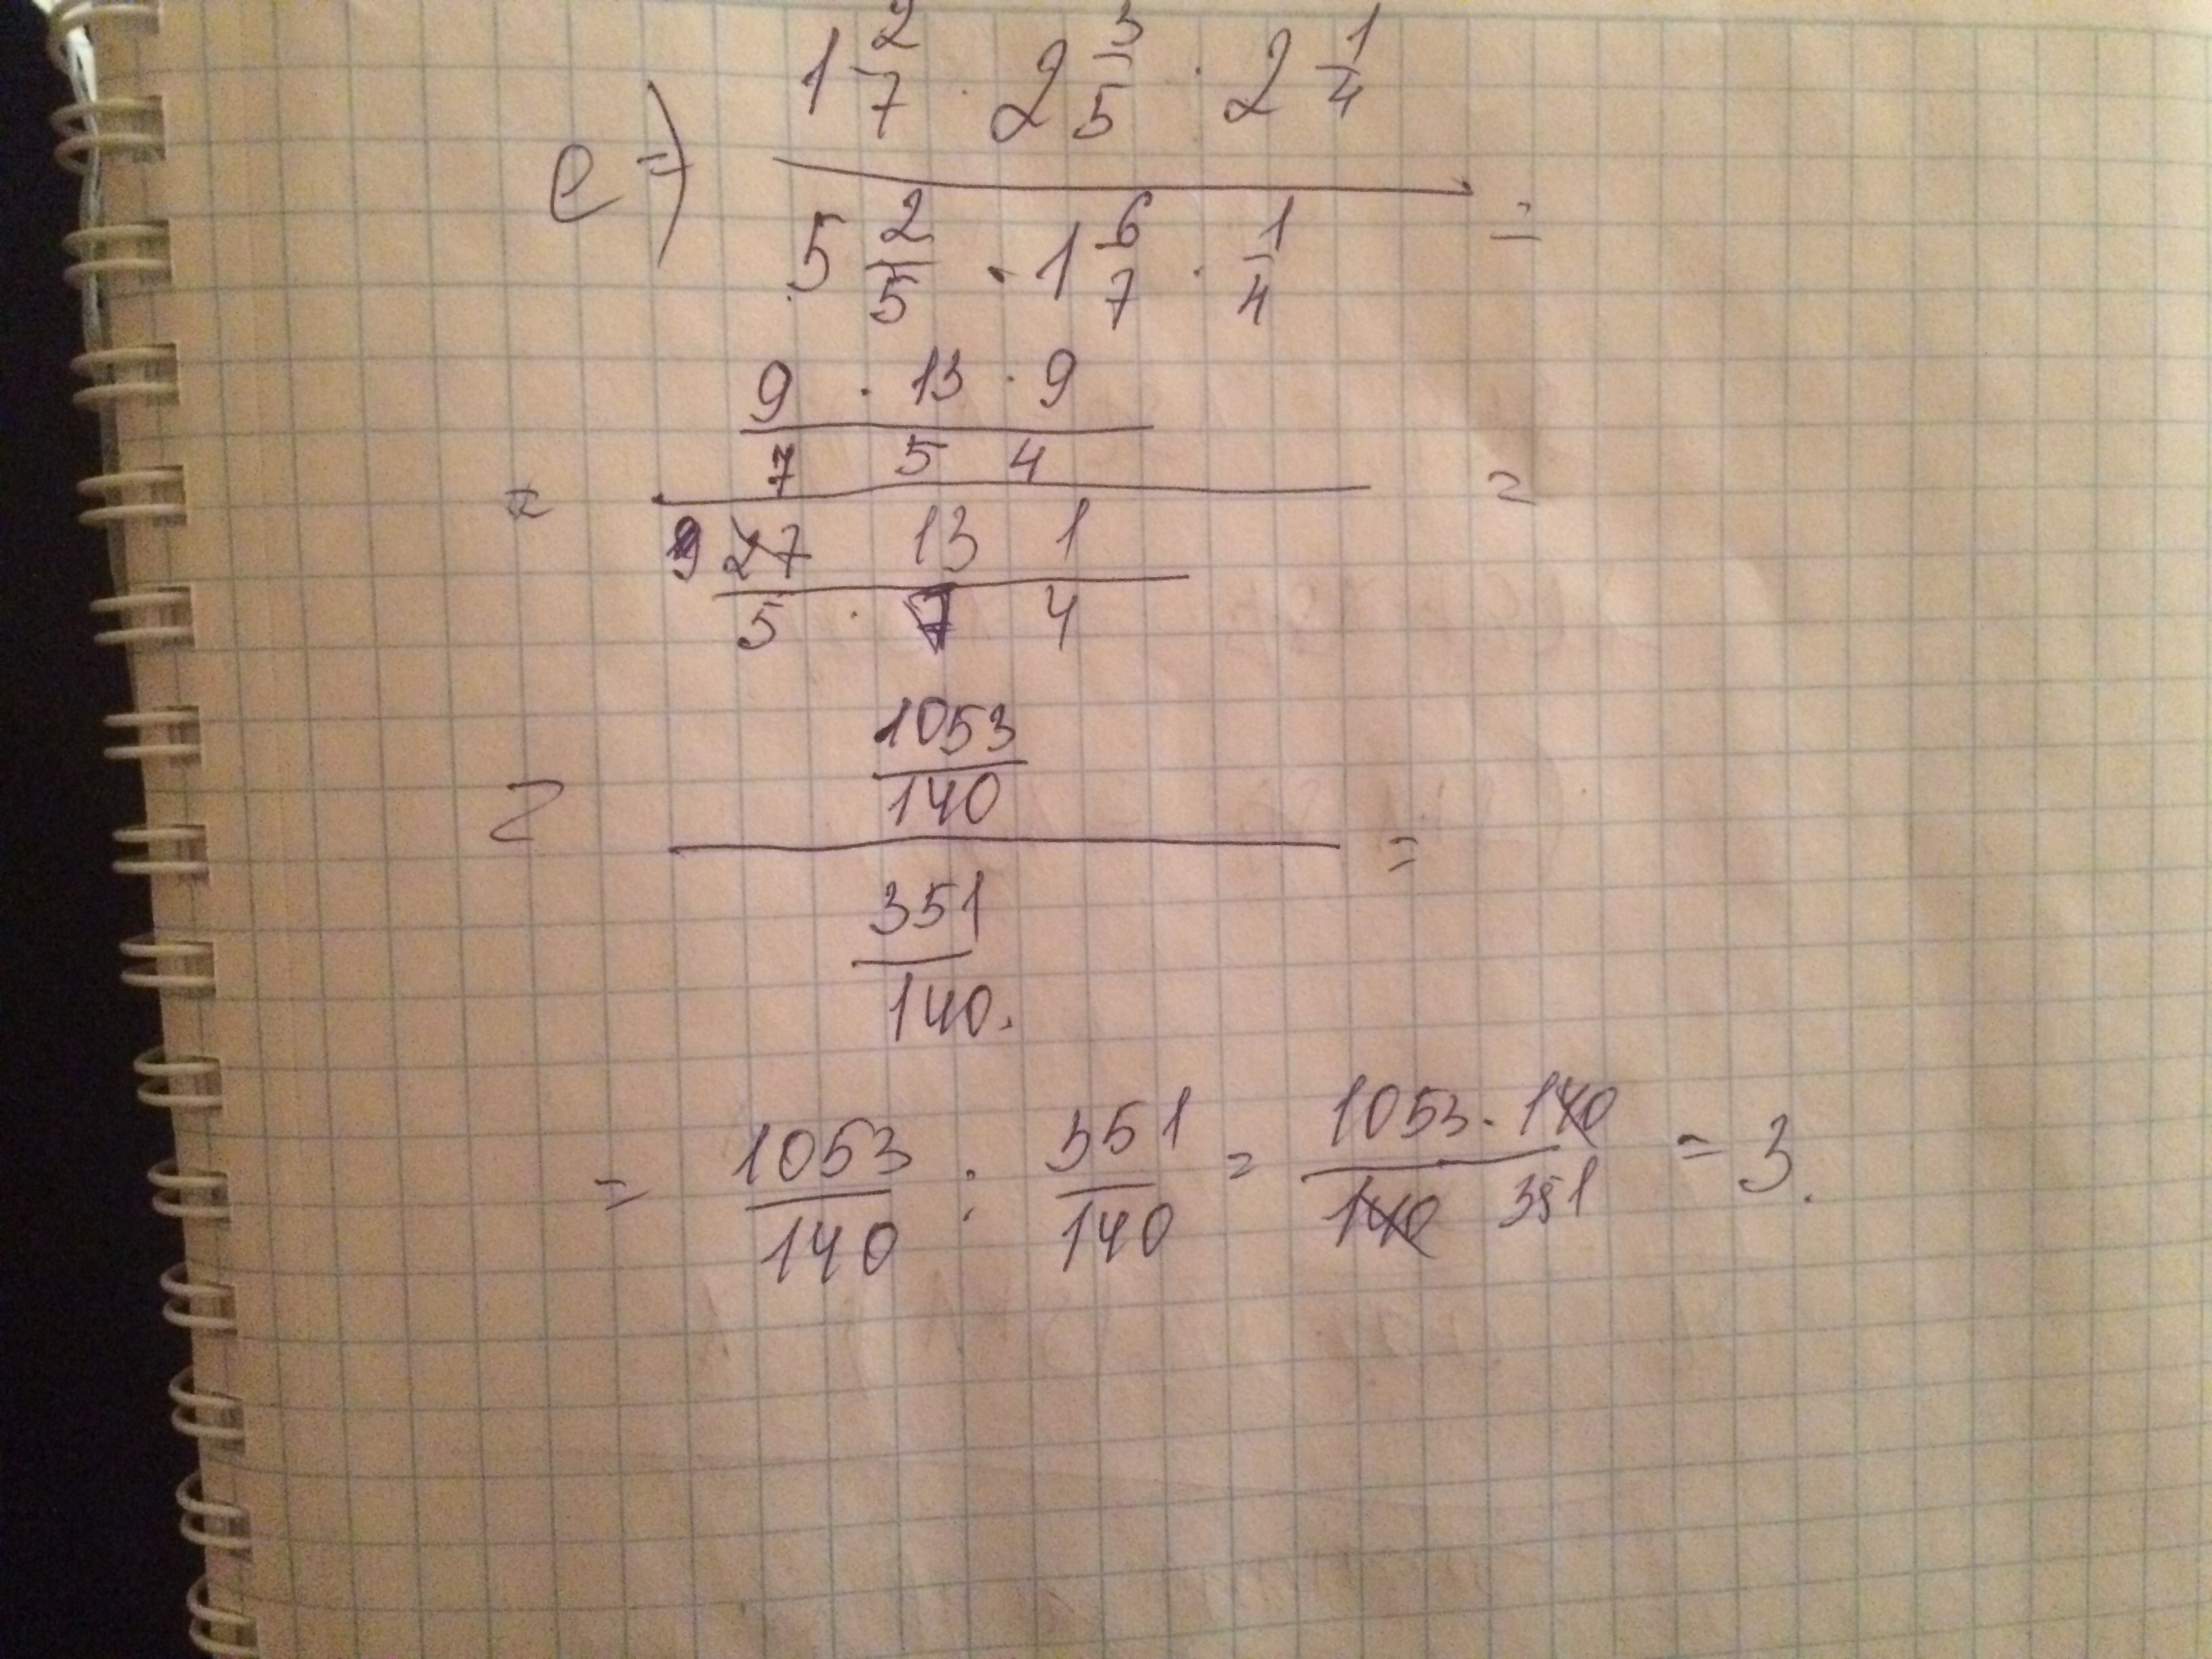 e=) 1 2/7 · 2 3/5 · 2 1/4
5 2/5 · 1 6/7 · 1/4 =
9 · 13 · 9
7 5 4
= =
9 27 13 1
5 · 7 4
1053
140
= =
351
140.
= 1053/140 : 351/140 = 1053 · 140 / 140 351 = 3.